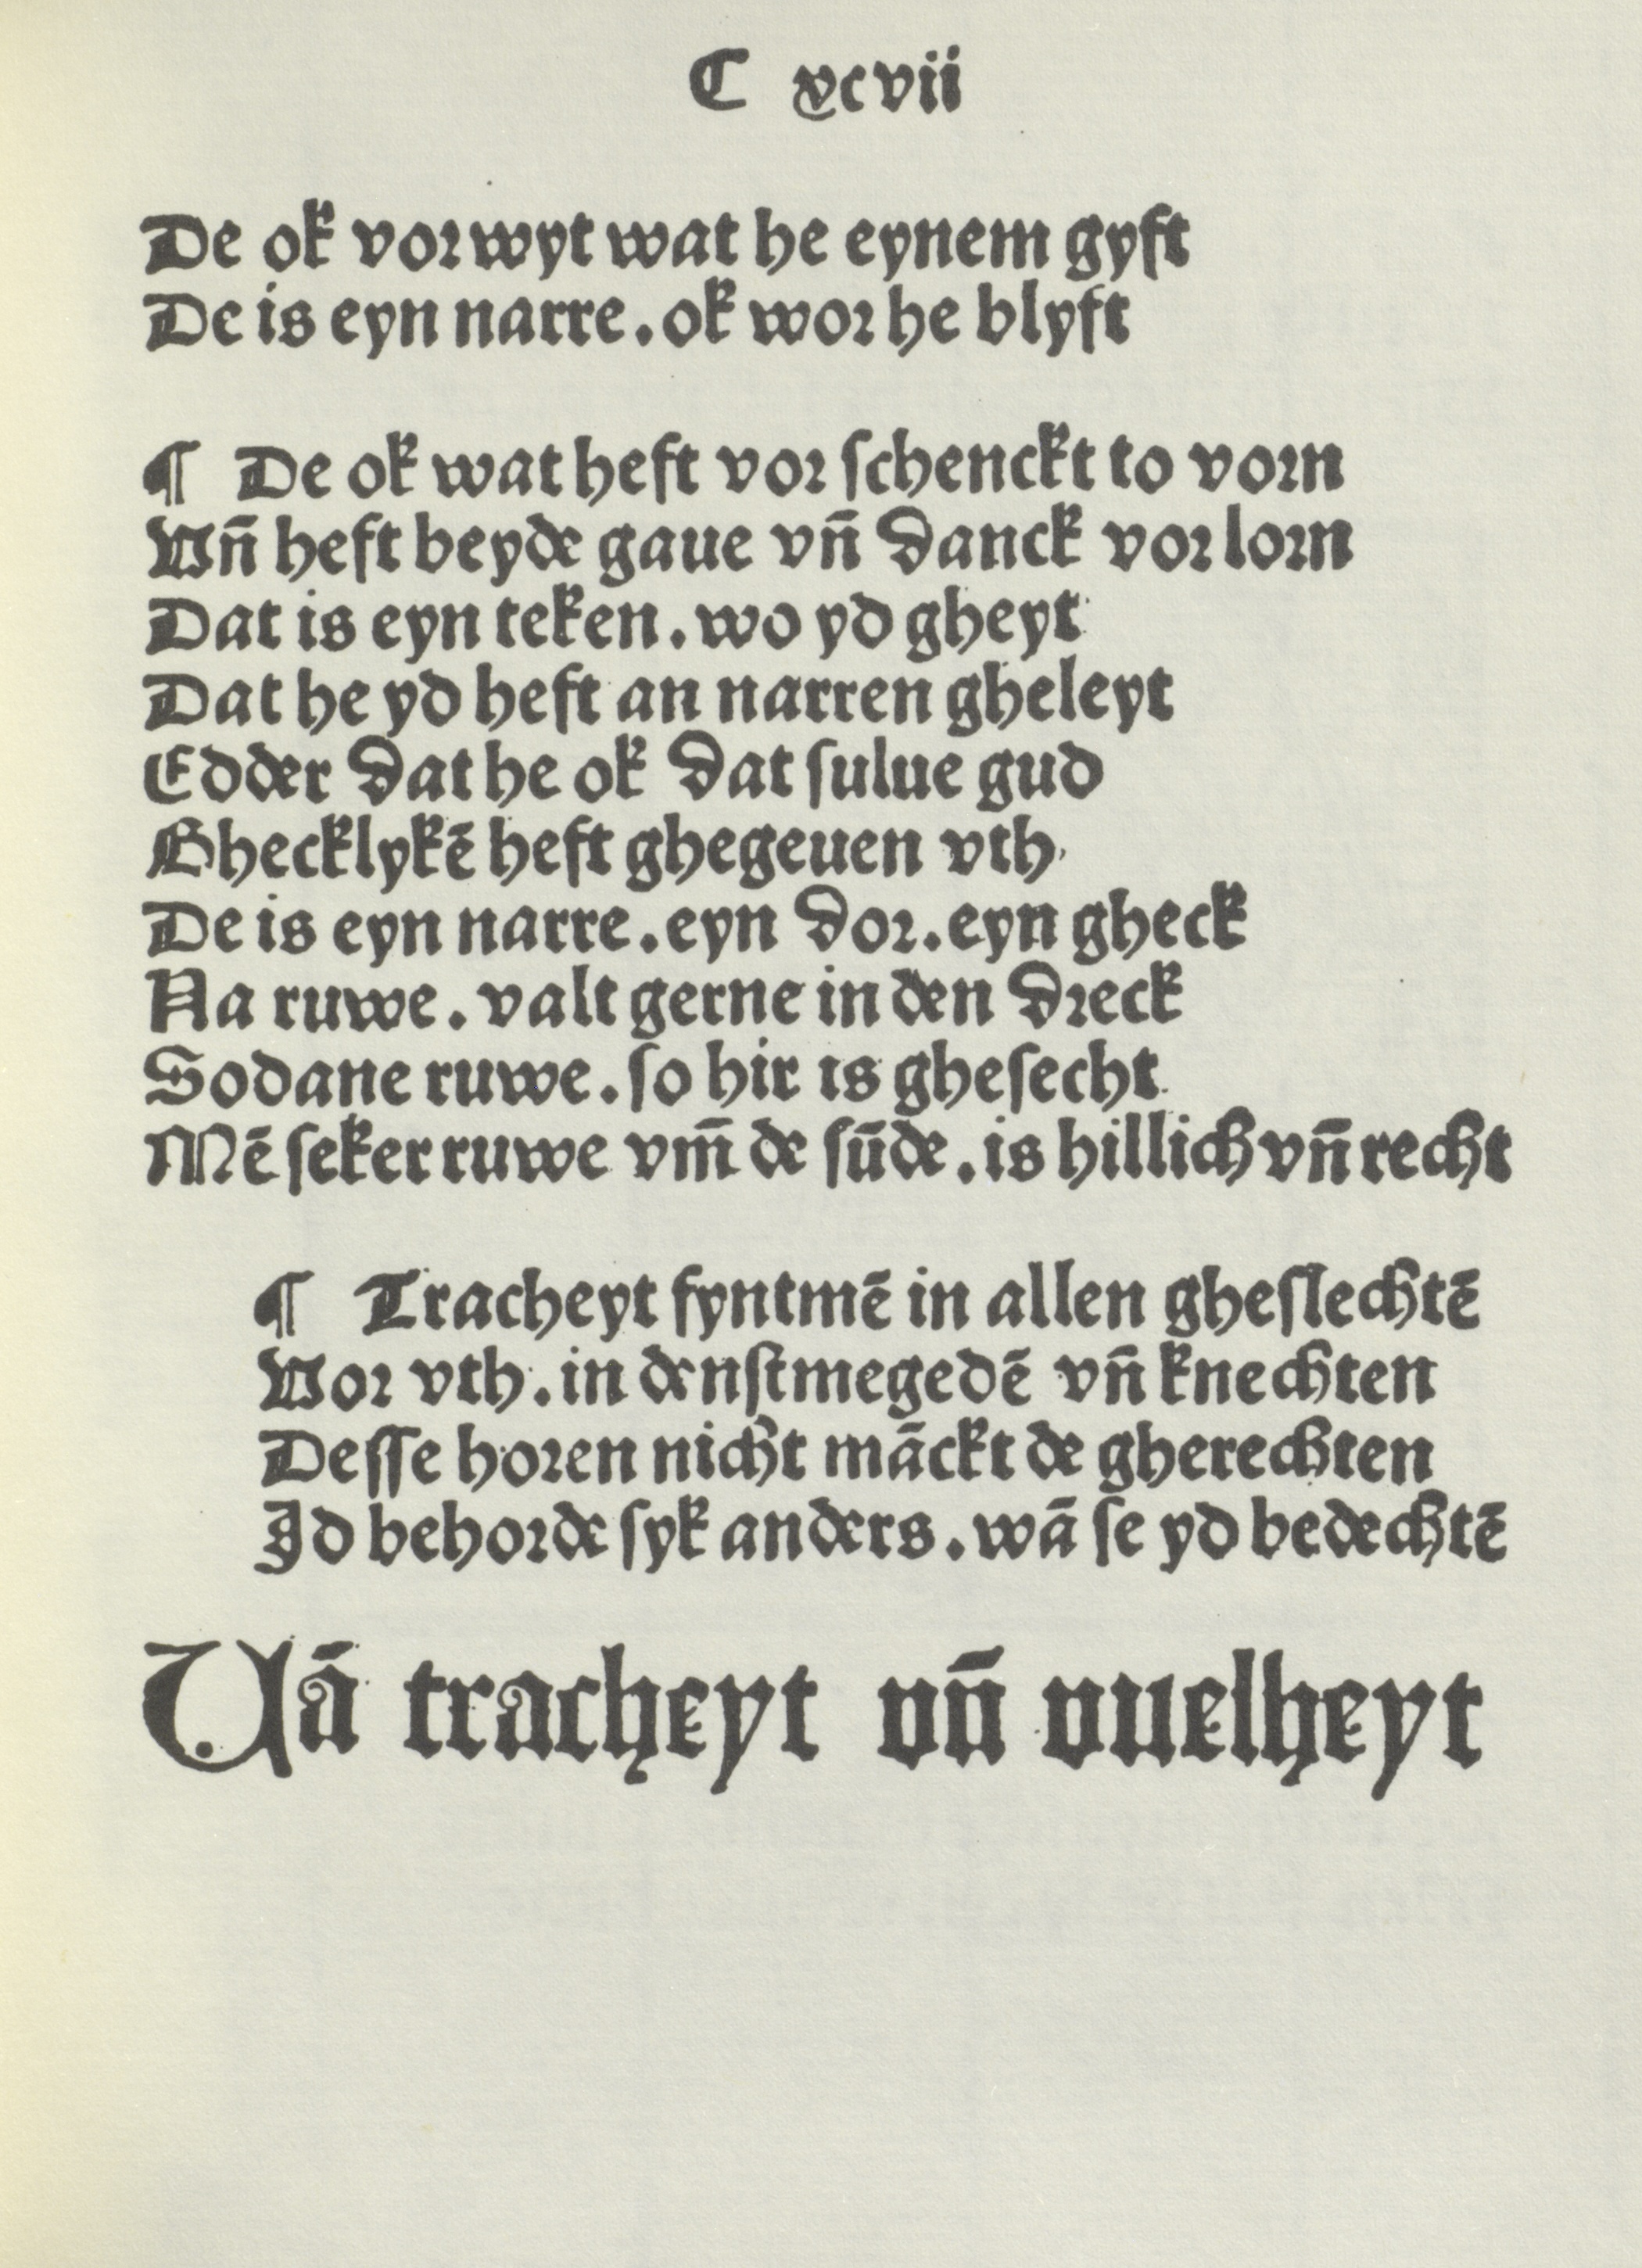 C xcvii
De ok vorwyt wat he eynem gyft
De is eyn narre. ok wor he blyft
¶ De ok wat heft vor ſchenckt to vorn
Vn̄ heft beyde gaue vn̄ danck vor lorn
Dat is eyn teken. wo yd gheyt
Dat he yd heft an narren gheleyt
Edder dat he ok dat ſulue gud
Ghecklykē heft ghegeuen vth
De is eyn narre. eyn dor. eyn gheck
Na ruwe. valt gerne in den dreck
Sodane ruwe. ſo hir is gheſecht
Mē ſeker ruwe vm̄ de ſūde. is hillich vn̄ recht
¶ Tracheyt fyntmē in allen gheſlechtē
Vor vth. in denſtmegedē vn̄ knechten
Deſſe horen nicht māckt de gherechten
Id behorde ſyk anders. wā ſe yd bedechtē
Uā tracheyt vn̄ vuelheyt